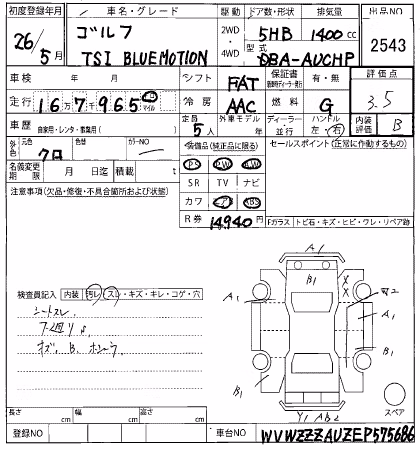 初度登録年月 車名・グレード 駆動 ドア数・形状 排気量 出品NO
26/5月 ゴルフ TSI BLUEMOTION 2WD・4WD 5HB 1400cc 2543
型式 DBA-AUCHP
車検 年 月 シフト FAT 保証書 有・無 評価点 3.5
走行 16万7965 マイル 冷房 AAC 燃料 G
車歴 自家用・レンタ・事業用( ) 定員 5人 外車モデル 年 ディーラー・並行 ハンドル 左・右 内装評価 B
外色 元色 クロ 色替 カラーNO 装備品(純正品に限る) セールスポイント(正常に作動するもの)
PS PW AW
名義変更期限 月 日迄 積載 t SR TV ナビ
注意事項(欠品・修復・不具合箇所および状態) カワ ABS
R券 14,940円 Fガラス トビ石・キズ・ヒビ・ワレ・リペア跡
A1
B1
A1
X
X
A1
検査員記入 内装 汚レ・スレ・キズ・キレ・コゲ・穴
シートスレ
B1
B1
スペア
Y1 AB2
長さ cm 幅 cm 高さ cm
登録NO 車台NO WVWZZZAUZEP575686